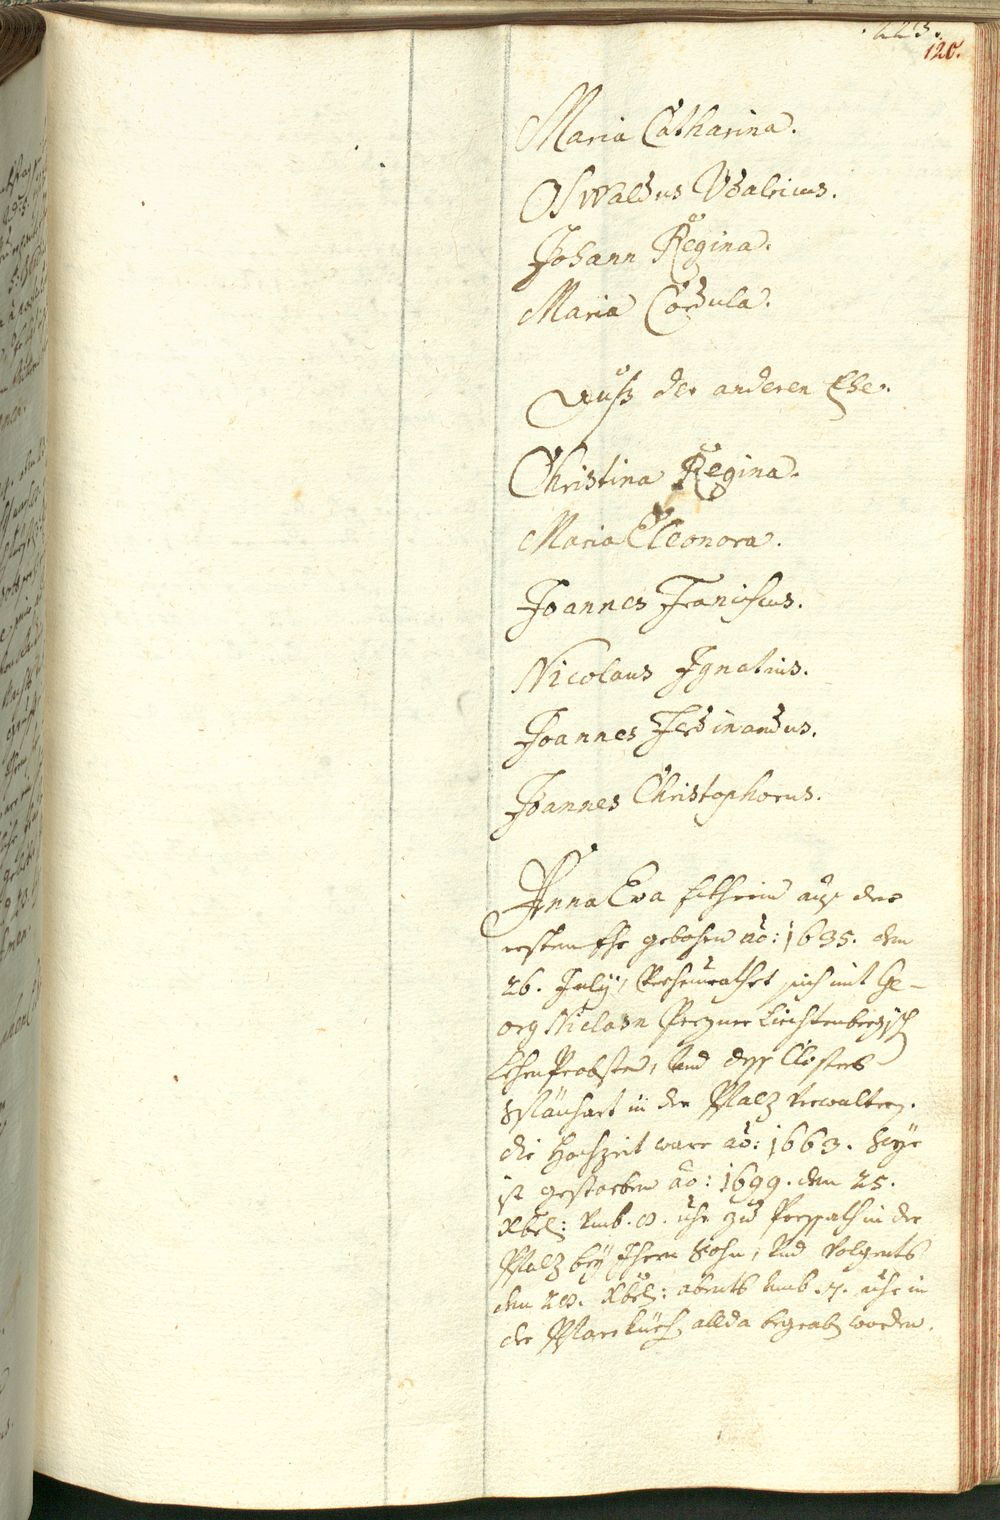 223.
120.
Maria Catharina.
Oswaldus Udalricus.
Johann Regina.
Maria Cordula.
Auß der anderen Ehe.
Christina Regina.
Maria Eleonora.
Joannes Franciscus.
Nicolaus Ignatius.
Joannes Ferdinandus.
Joannes Christophorus.
Anna Eva auß der
ersten Ehe gebohrn aõ: 1635. den
26. July, Verheurathet sich mit Ge-
org Niclasn Pergner Liechtenbergisch
LehenProbsten, und deß Closters
in der Pfalz Verwaltern.
die Hochzeit ware aõ: 1663. Seye
ist gestorben aõ: 1699. den 25.
Xbris: umb .8. uhr zu in der
Pfalz bey Ihren Sohn, und volgents
den 28. Xbris: abents umb .7. uhr in
der Pfarrkürch allda begraben worden.